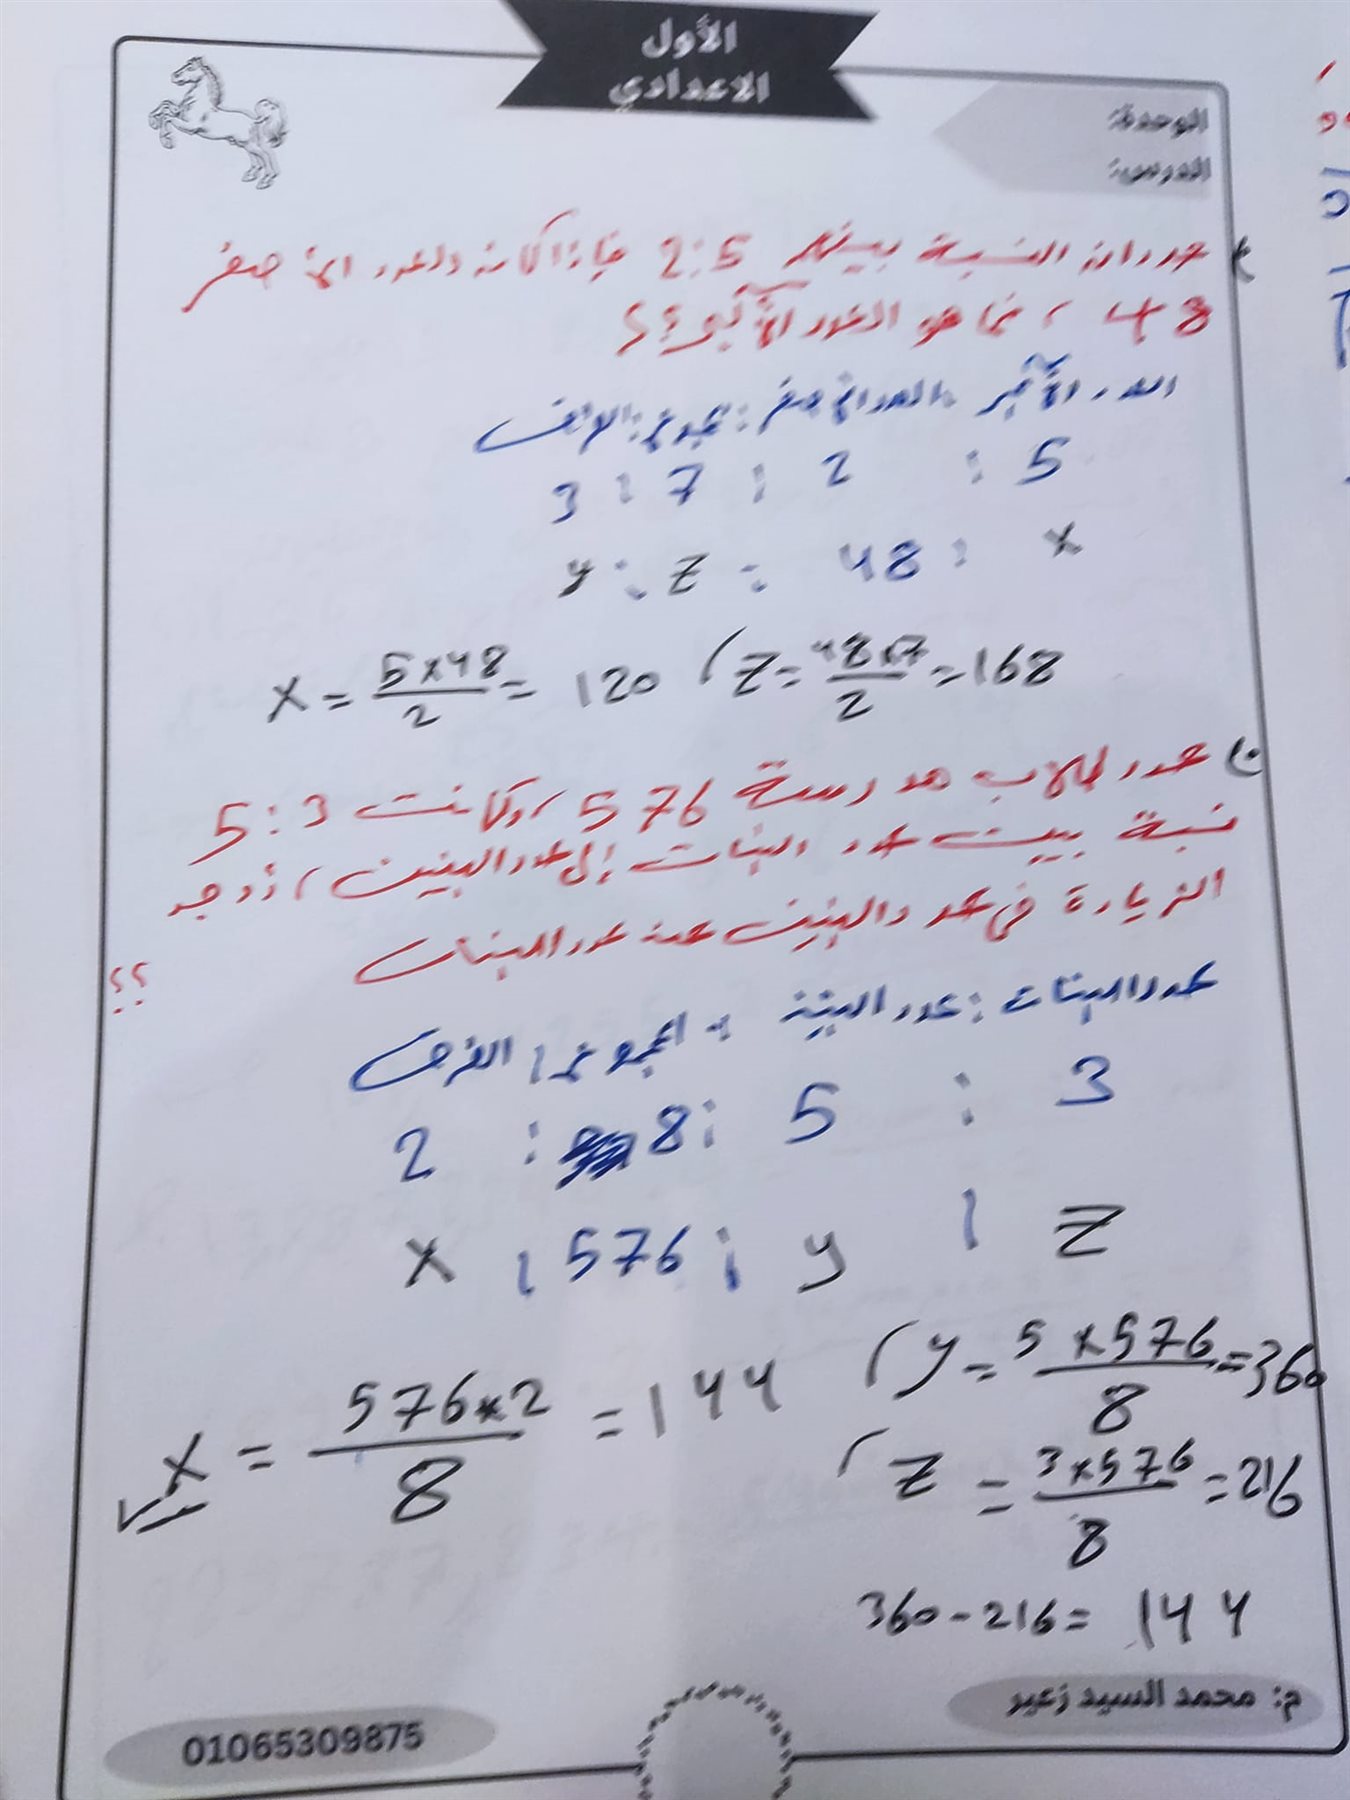 الأول
الاعدادي
الوحدة:
الدرس:
عددان النسبة بينهم 2:5 فإذا كان العدد الأصغر
48 ، فما هو العدد الأكبر؟؟
العدد الأكبر : العدد الأصغر : مجموع : الفرق
5 : 2 : 7 : 3
x : 48 : z : y
x = 5×48/2 = 120 ( z = 48×7/2 = 168
عدد طلاب مدرسة 576 ، وكانت 3 : 5
نسبة بين عدد البنات إلى عدد البنين ، أوجد
الزيادة في عدد البنين عن عدد البنات
؟؟
عدد البنات : عدد البنين : المجموع : الفرق
3 : 5 : 8 : 2
z : y : 576 : x
x = 576×2/8 = 144 ( y = 5×576/8 = 360
( z = 3×576/8 = 216
360 - 216 = 144
م: محمد السيد زعير
01065309875